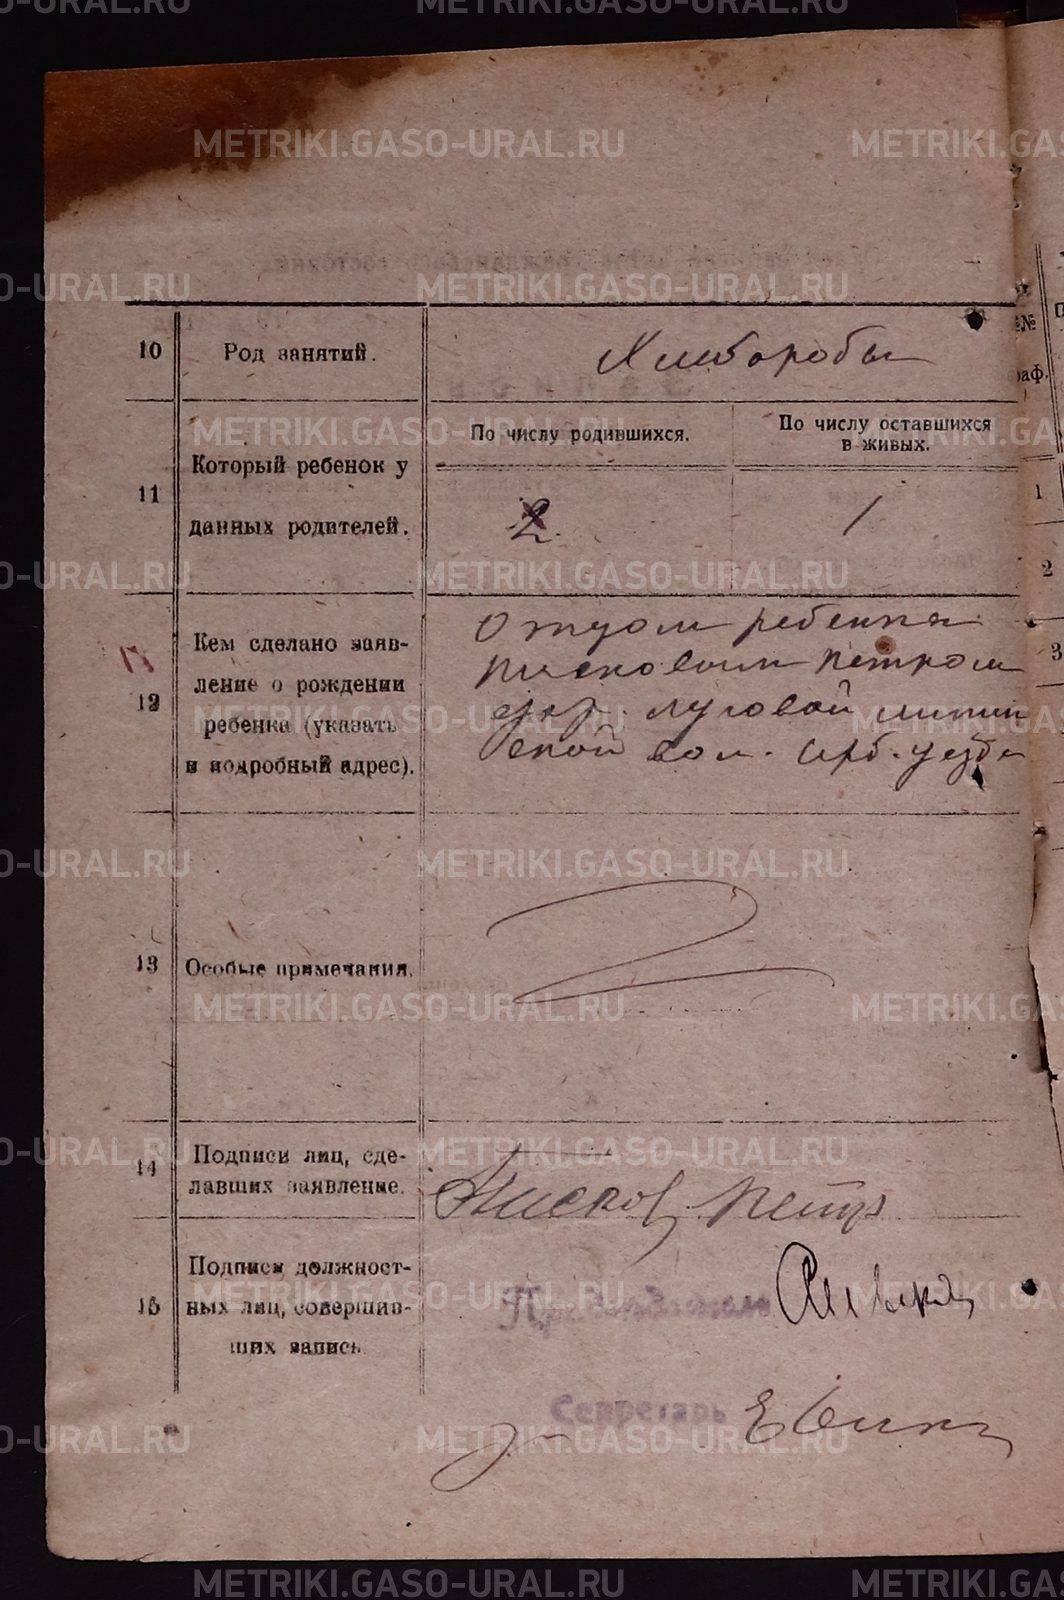 10 Род занятий. Хлеборобы
11 Который ребенок у данных родителей.
По числу родившихся.
По числу оставшихся
в живых.
2.
1
12 Кем сделано заяв-
ление о рождении
ребенка (указать
и подробный адрес).
Отцом ребенка
Писковым Петром
дер. Луговой
ской вол. Ирб. уезда
13 Особые примечания.
14 Подписи лиц, сде-
лавших заявление.
Писков Петр
15 Подписи должност-
ных лиц, совершив-
ших запись
Председатель
Секретарь
№№
1
2
3
METRIKI.GASO-URAL.RU